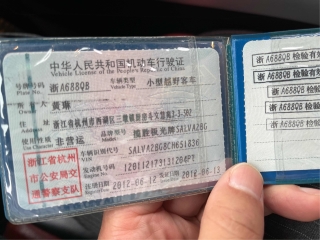 中华人民共和国机动车行驶证
Vehicle License of the People's Republic of China
号牌号码 浙A688QB 车辆类型 小型越野客车
Plate No.
所有人 黄琳
Owner
住址 浙江省杭州市西湖区三墩镇
Address
使用性质 非营运 品牌型号 揽胜极光牌SALVA2BG
浙江省杭州市公安局交通警察支队
车辆识别代号 SALVA2BG8CH651836
VIN
发动机号码
注册日期 2012-06-12 发证日期 2012-06-13
浙A688QB 检验有效
浙A688QB 检验有效
浙A688QB 检验有效
浙A688QB 检验有效
浙A688QB